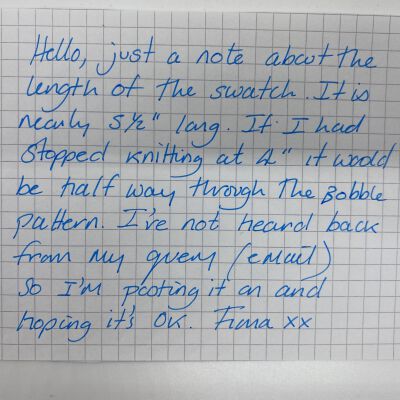 Hello, just a note about the
length of the swatch. It is
nearly 5½" long. If I had
stopped knitting at 4" it would
be half way through The Bobble
pattern. I've not heard back
from my query (email)
So I'm posting it on and
hoping it's OK. Fiona xx